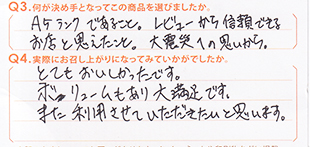 Q3.何が決め手となってこの商品を選びましたか。
A5ランクであること。レビューから信頼できる
お店と思えたこと。大震災への思いから。
Q4.実際にお召し上がりになってみていかがでしたか。
とてもおいしかったです。
ボリュームもあり大満足です。
また利用させていただきたいと思います。